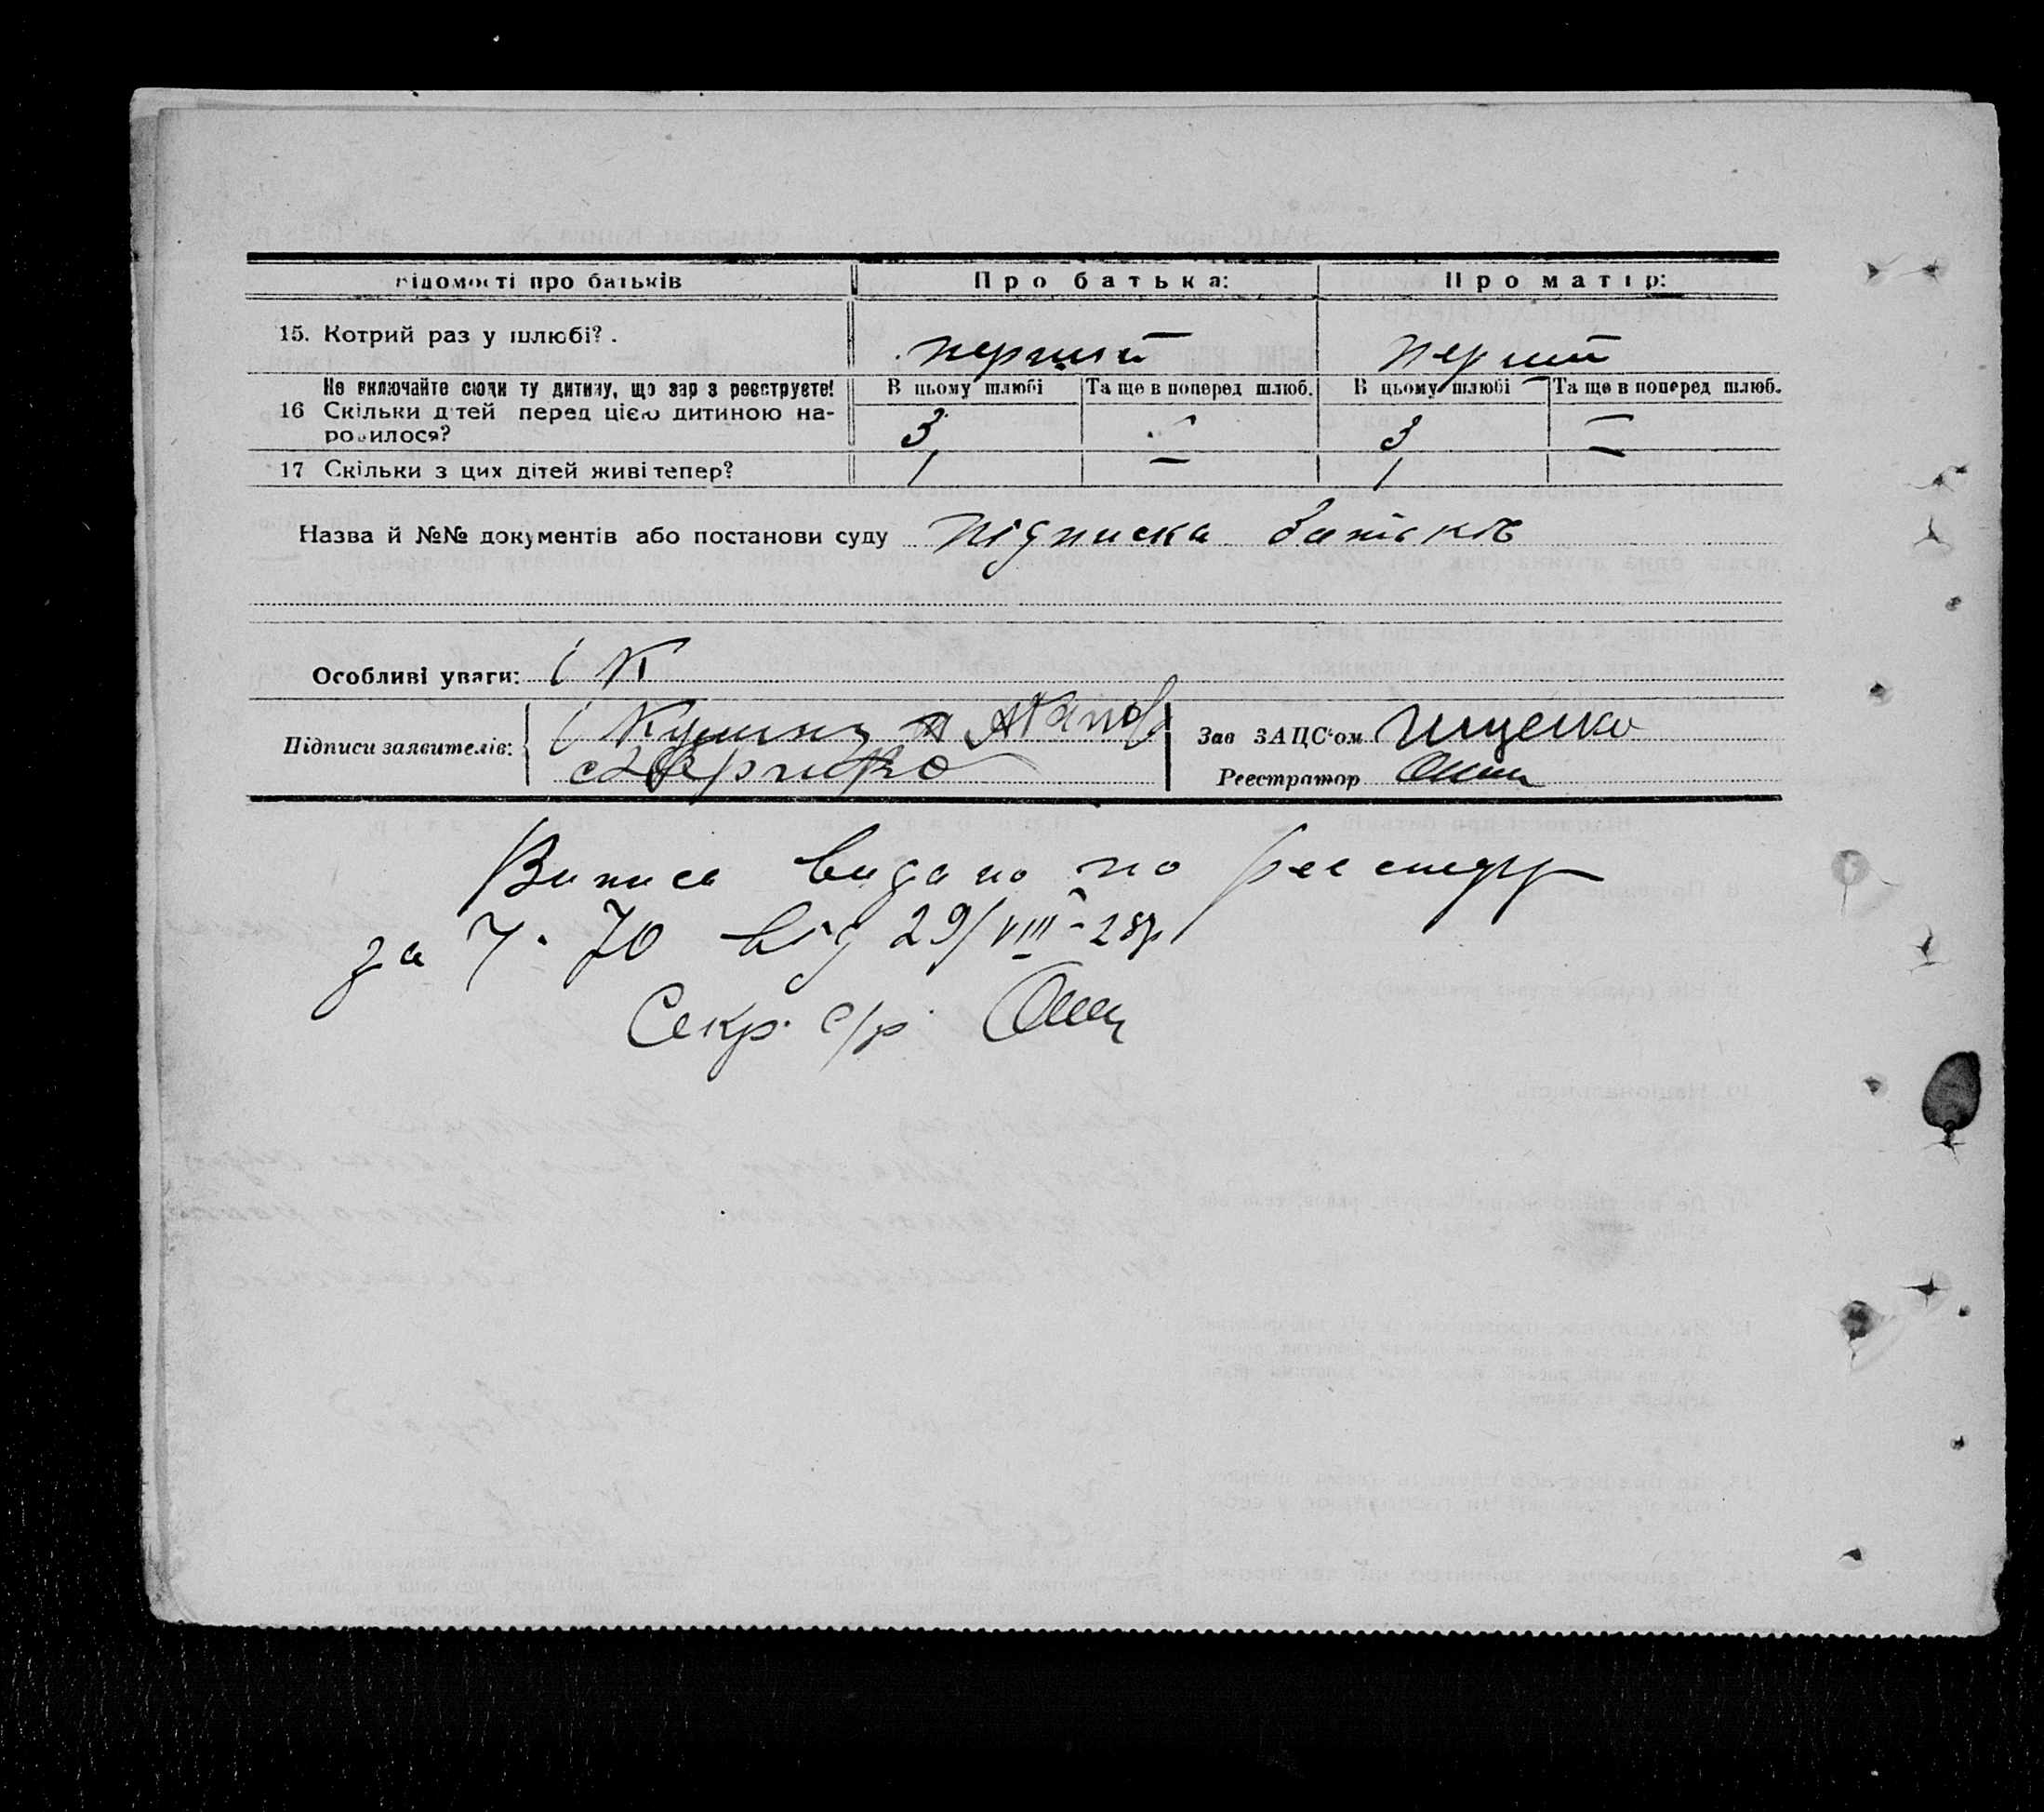 відомості про батьків Про батька: Про матір:
15. Котрий раз у шлюбі? . перший перший
Не включайте сюди ту дитину, що зараз реєструєте! В цьому шлюбі Та ще в поперед шлюб. В цьому шлюбі Та ще в поперед шлюб.
16 Скільки дітей перед цією дитиною на- 3 — 3 —
родилося?
17 Скільки з цих дітей живі тепер? 1 — 1
Назва й №№ документів або постанови суду підписка батьків
Особливі уваги: К
Підписи заявителів:
Зав ЗАЦС'ом Ищенко
Реєстратор
Випись видано по реєстру
за Ч. 70 від 29/VIII-28р
Секр. с/р.